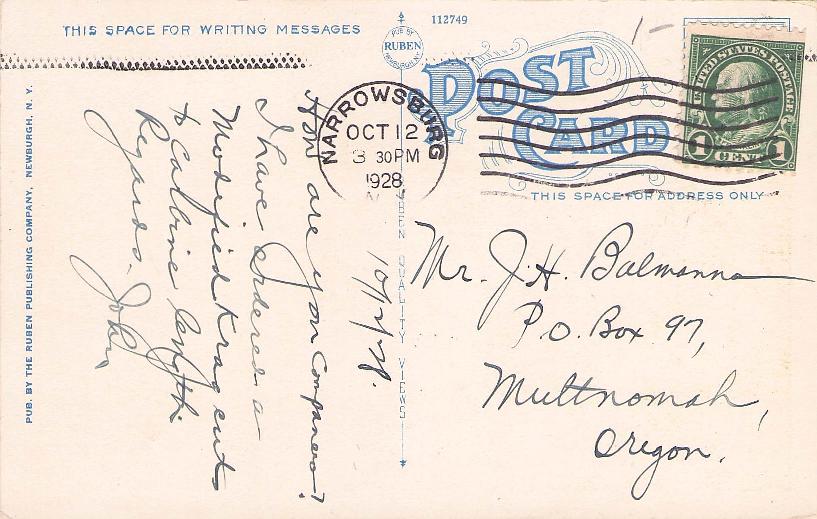 THIS SPACE FOR WRITING MESSAGES
112749
PUB BY
RUBEN
NEWBURGH, N.Y.
POST CARD
UNITED STATES POSTAGE
1 CENT 1
NARROWSBURG
OCT 12
3 30 PM
1928
THIS SPACE FOR ADDRESS ONLY
PUB. BY THE RUBEN PUBLISHING COMPANY, NEWBURGH, N. Y.
RUBEN QUALITY VIEWS
10/12/28.
How are you Companero?
I have ordered a
Modified Krag cut
to Carbine length.
Regards. John
Mr. J. H. Balmanna
P.O. Box 97,
Multnomah,
Oregon.